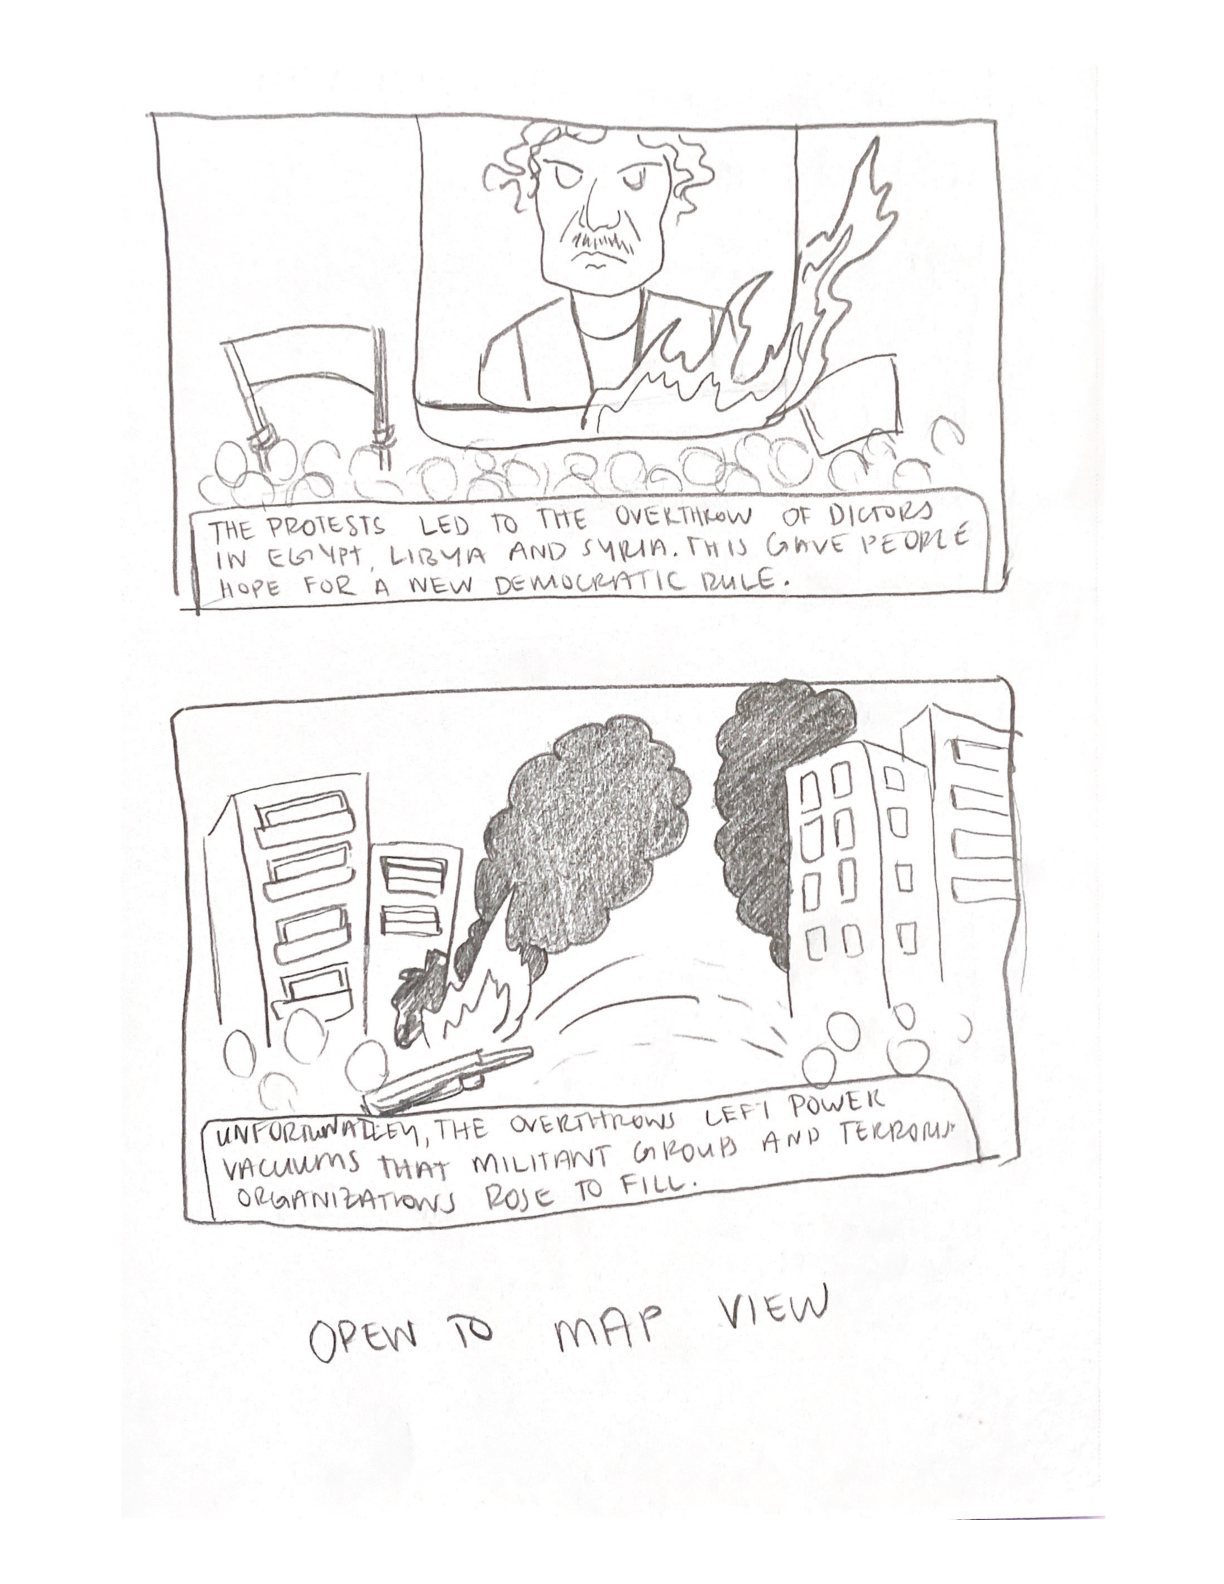 THE PROTESTS LED TO THE OVERTHROW OF DICTORS
IN EGYPT, LIBYA AND SYRIA. THIS GAVE PEOPLE
HOPE FOR A NEW DEMOCRATIC RULE.
UNFORTUNATLEY, THE OVERTHROWS LEFT POWER
VACUUMS THAT MILITANT GROUPS AND TERRORIST
ORGANIZATIONS ROSE TO FILL.
OPEN TO MAP VIEW